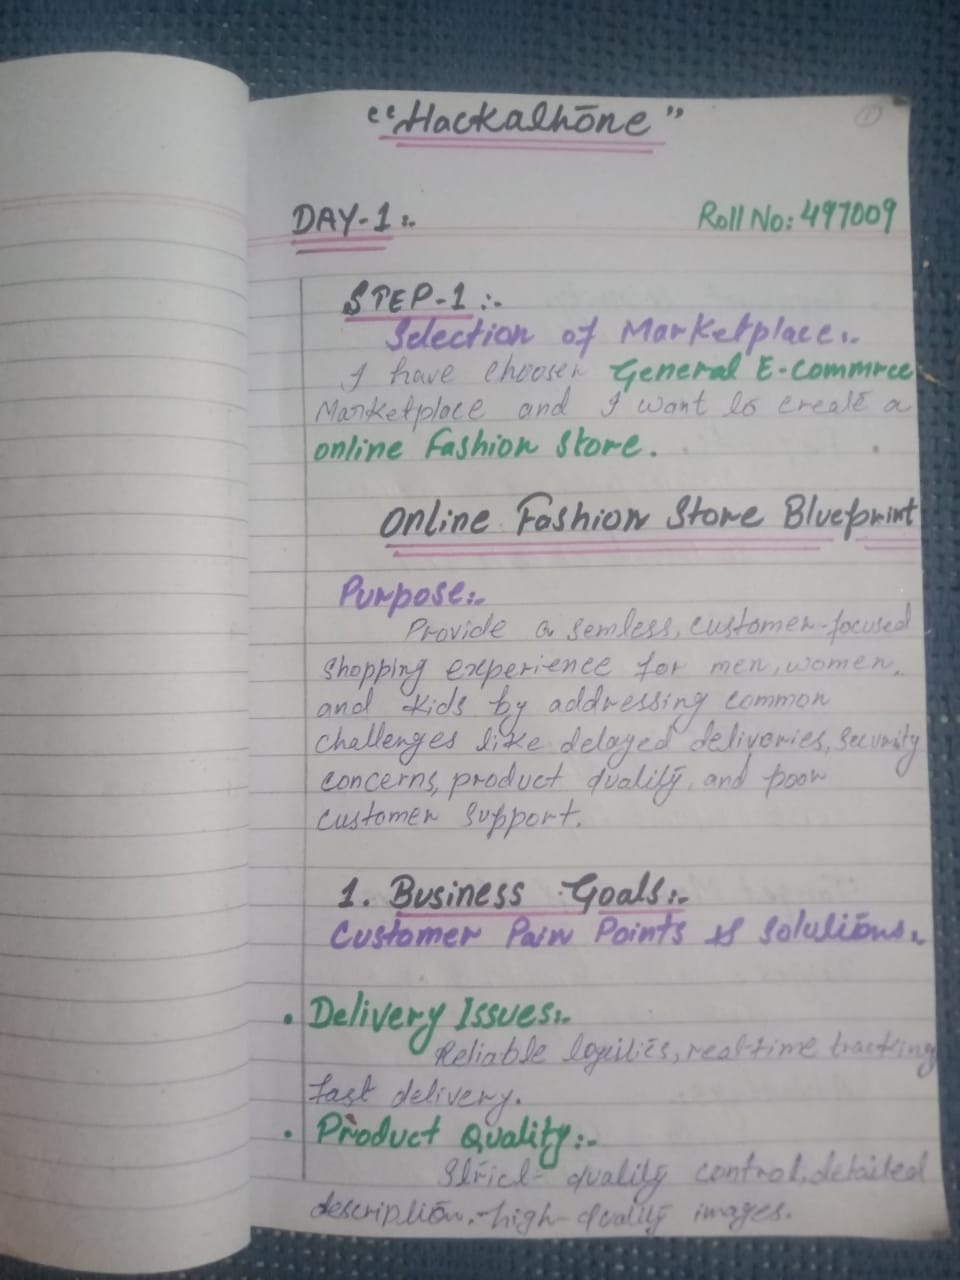 "Hackathone"
1
DAY-1:-
Roll No: 497009
STEP-1:-
Selection of Marketplace:-
I have choosen General E-Commrce
Marketplace and I want to create a
online Fashion Store.
Online Fashion Store Blueprint
Purpose:-
Provide a semless, customer-focused
shopping experience for men, women,
and kids by addressing common
challenges like delayed deliveries, security
concerns, product quality, and poor
customer support.
1. Business Goals:-
Customer Pain Points & Solutions.
• Delivery Issues:-
Reliable logistics, real-time tracking
fast delivery.
• Product Quality:-
Strict quality control, detailed
description, high-quality images.